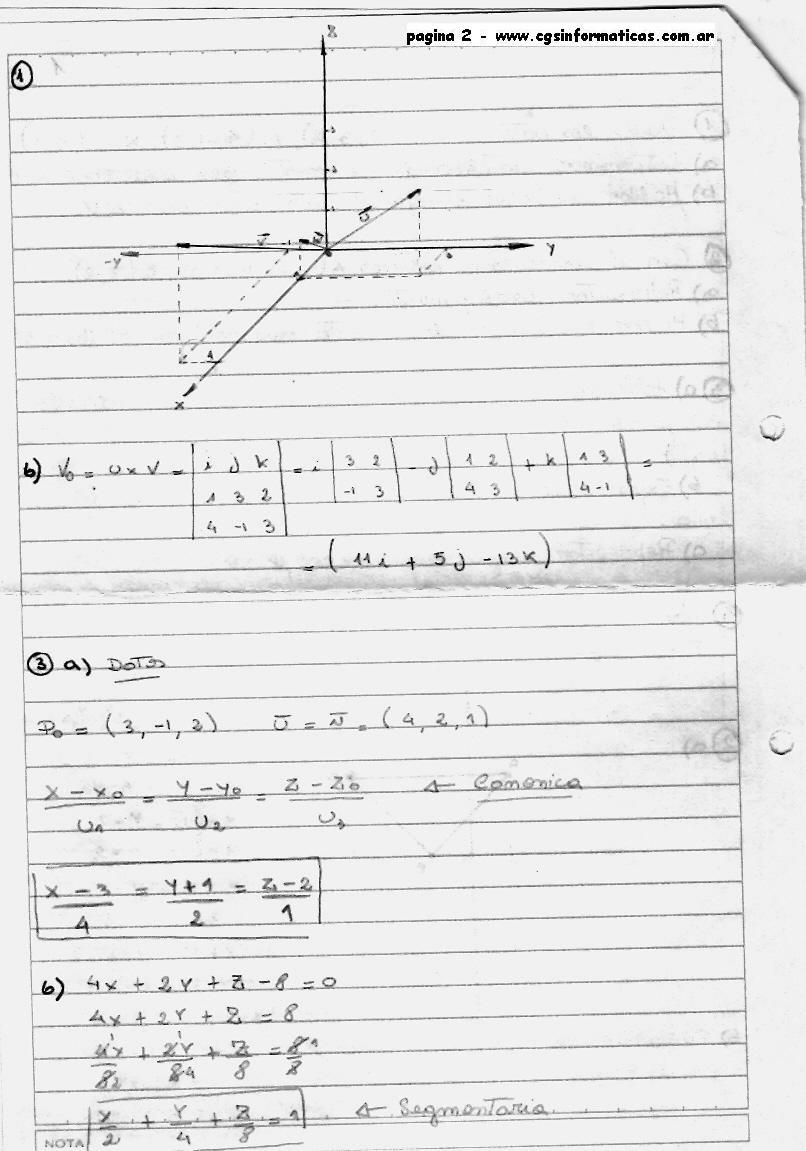 pagina 2 - www.cgsinformaticas.com.ar
1
Z
3
2
1
V
U
-Y
Y
4
X
b) V₀ = U x V = | i j k | = i | 3 2 | - j | 1 2 | + k | 1 3 | =
1 3 2 -1 3 4 3 4 -1
4 -1 3
= (11i + 5j - 13k)
3 a) Datos
P₀ = (3, -1, 2) U = N = (4, 2, 1)
X - X₀ / U₁ = Y - Y₀ / U₂ = Z - Z₀ / U₃ ← Canonica
X - 3 / 4 = Y + 1 / 2 = Z - 2 / 1
b) 4X + 2Y + Z - 8 = 0
4X + 2Y + Z = 8
4X/8 + 2Y/8 + Z/8 = 8/8
X/2 + Y/4 + Z/8 = 1 ← Segmentaria
NOTA